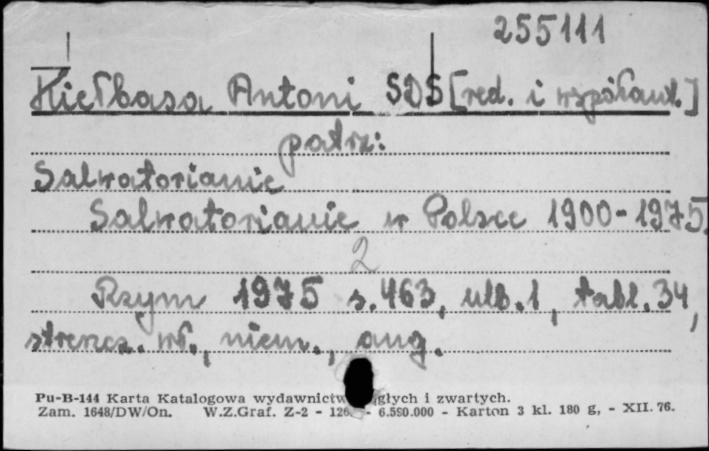 255111
Kiełbasa Antoni SDS [red. i współaut.]
patrz:
Salwatorianie
Salwatorianie w Polsce 1900-1975.
2
Rzym 1975 s. 463, ulb. 1, tabl. 34,
streszcz. wł., niem., ang.
Pu-B-144 Karta Katalogowa wydawnictw głych i zwartych.
Zam. 1648/DW/On. W.Z.Graf. Z-2 - 126 - 6.550.000 - Karton 3 kl. 180 g, - XII. 76.